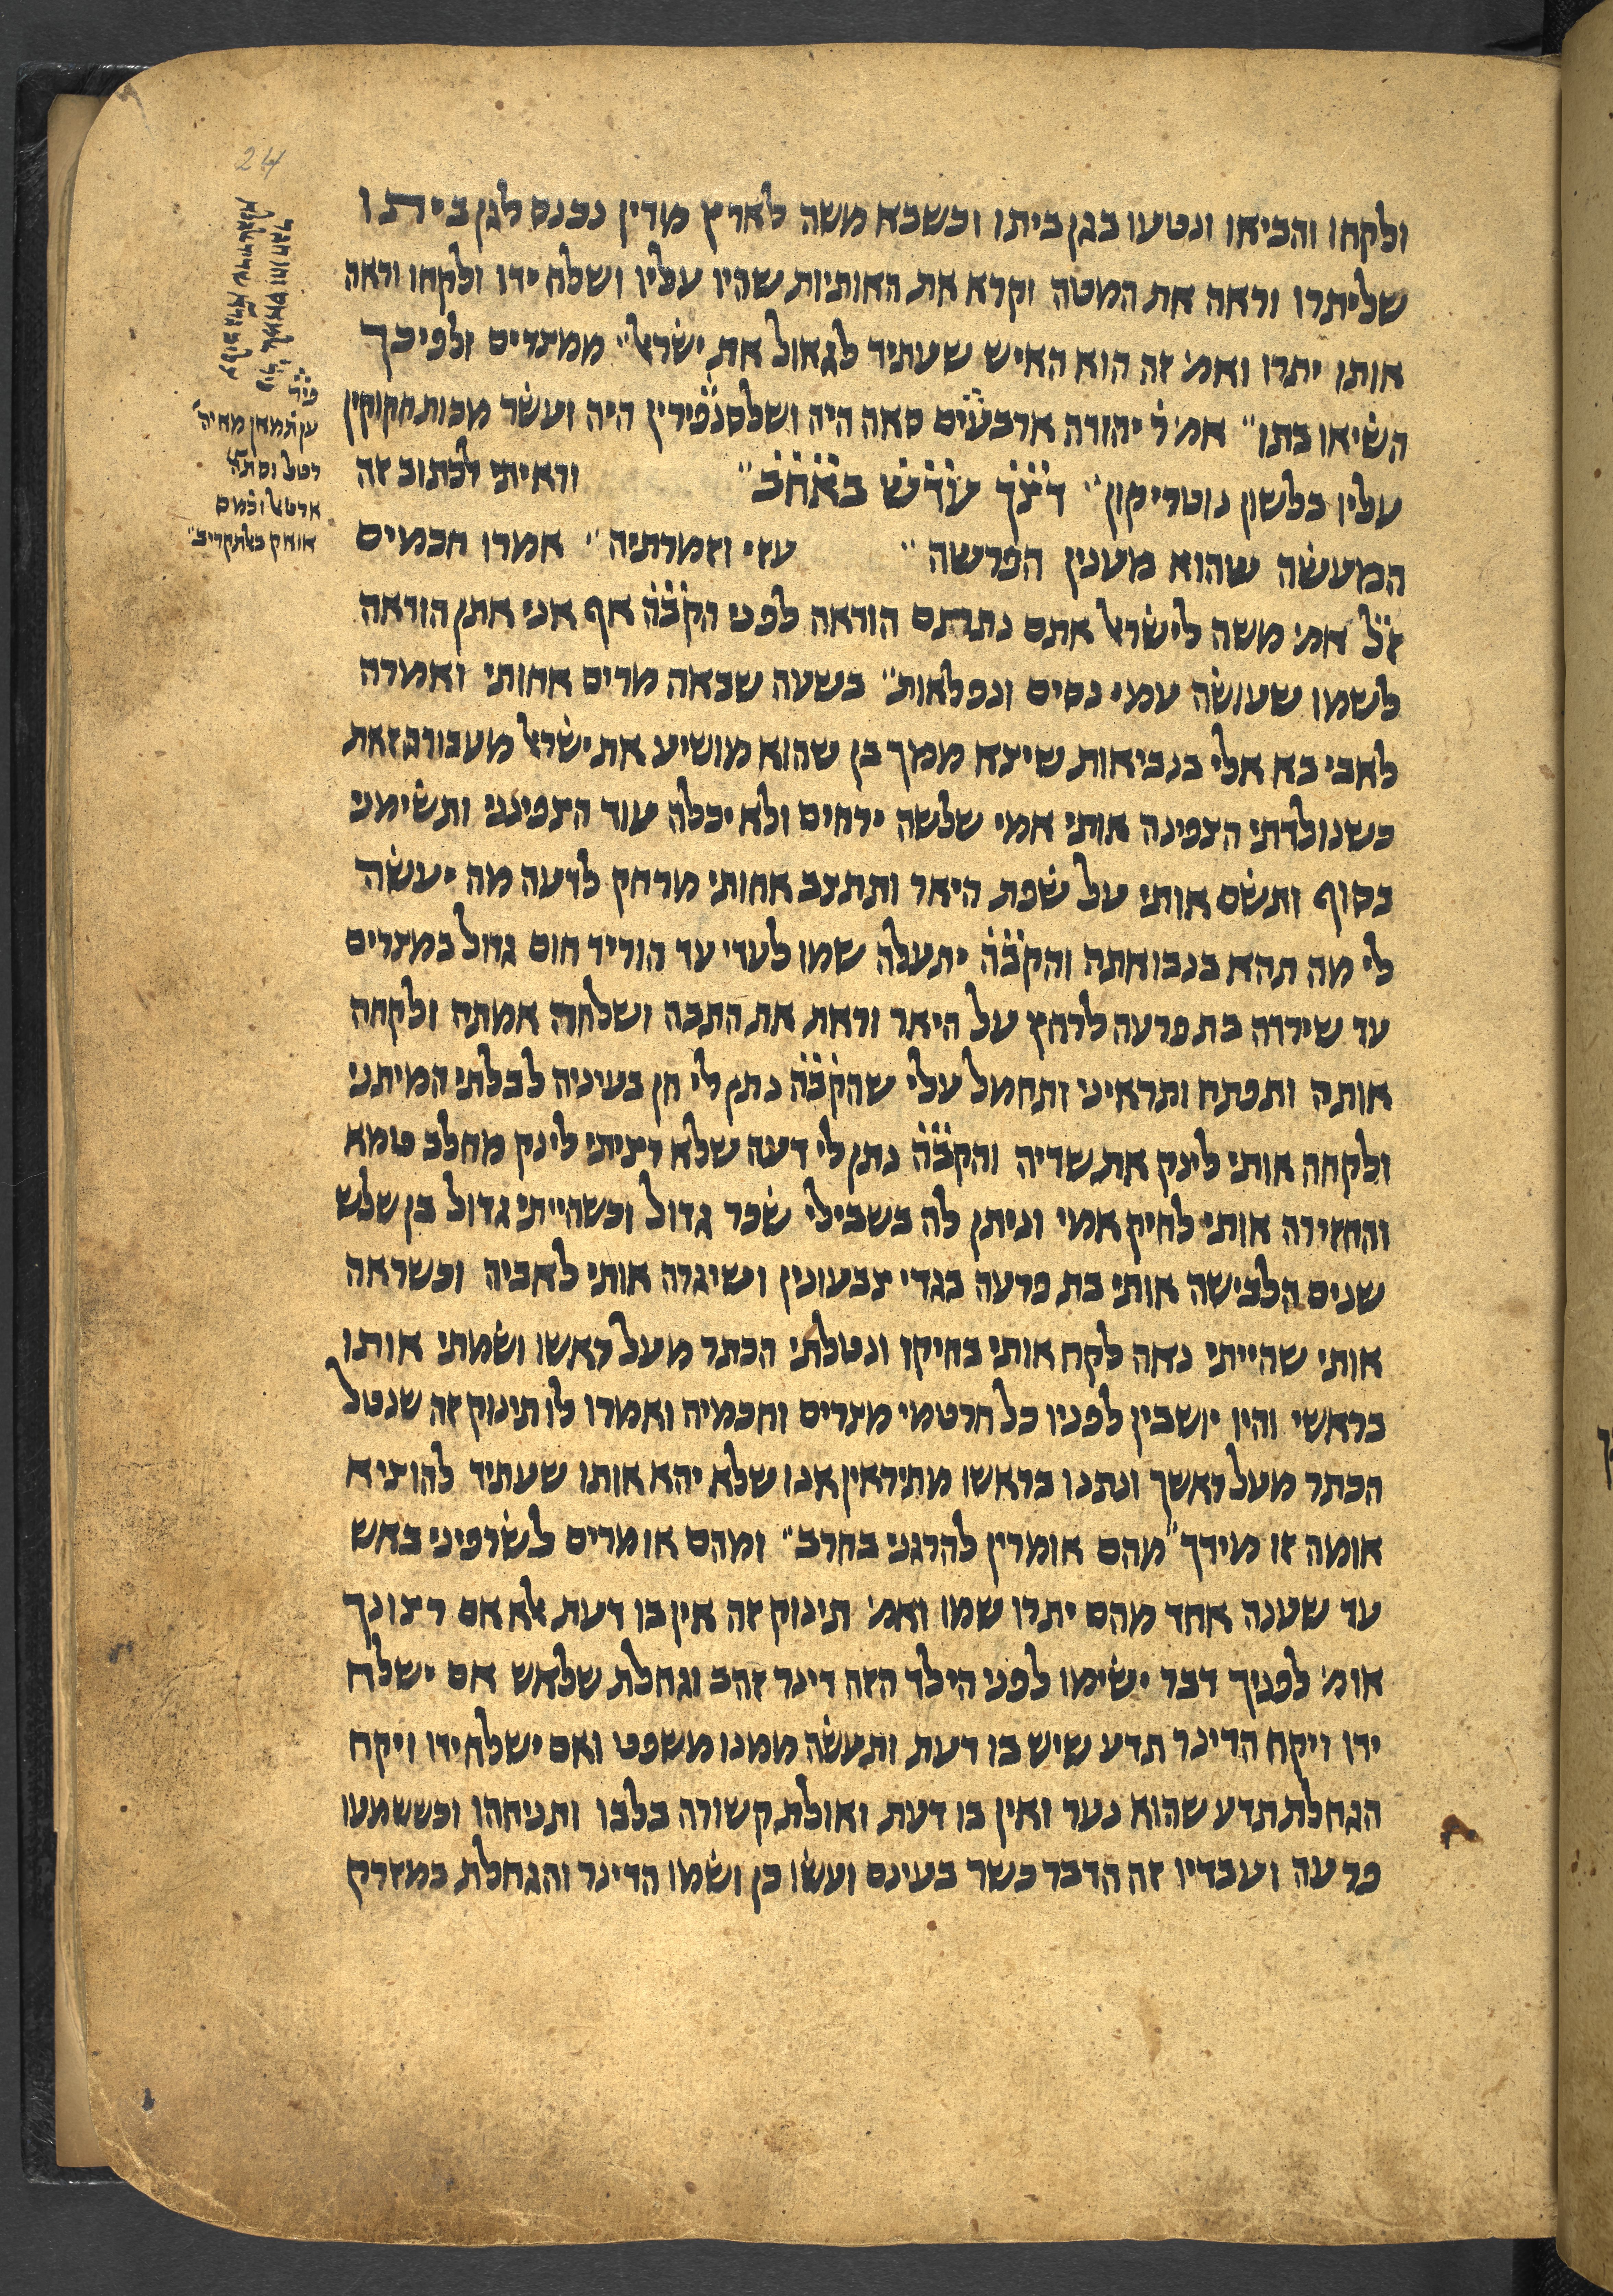 24
ולקחו והביאו ונטעו בגן ביתו וכשבא משה לארץ מדין נכנס לגן ביתו
שליתרו וראה את המטה וקרא את האותיות שהיו עליו ושלח ידו ולקחו וראה
אותו יתרו ואמ׳ זה הוא האיש שעתיד לגאול את ישׂראל״ ממצרים ולפיכך
השׂיאו בתו״ אמ׳ ר׳ יהודה ארבעים סאה היה ושלסנפירין היה ועשׂר מכות חקוקין
עליו בלשון נוטריקון״ דצך עדש באחב״ וראיתי לכתוב זה
המעשׂה שהוא מענין הפרשה״ עזי וזמרתיה״ אמרו חכמים
זל אמ׳ משה לישׂראל אתם נתתם הודאה לפני הקבה אף אני אתן הודאה
לשמו שעושׂה עמי נסים ונפלאות״ בשעה שבאה מרים אחותי ואמרה
לאבי בא אלי בנביאות שיצא ממך בן שהוא מושיע את ישׂראל מעבודה זאת
כשנולדתי הצפינה אותי אמי שלשה ירחים ולא יכלה עוד הצפינני ותשׂימני
בסוף ותשׂם אותי על שׂפת היאר ותתצב אחותי מרחק לדעה מה יעשׂה
לי מה תהא בנבואתה והקבה יתעלה שמו לעדי עד הוריד חום גדול במצרים
עד שירדה בת פרעה לרחץ על היאר וראת את התבה ושלחה אמתה ולקחה
אותה ותפתח ותראיני ותחמל עלי שהקבה נתן לי חן בעיניה לבלתי המיתני
ולקחה אותי לינק את שדיה והקבה נתן לי דעה שלא רציתי לינק מחלב טמא
והחזירה אותי לחיק אמי וניתן לה בשבילי שׂכר גדול וכשהייתי גדול בן שלש
שנים הלבישה אותי בת פרעה בגדי צבעונין ושיגרה אותי לאביה וכשראה
אותי שהייתי נאה לקח אותי בחיקו ונטלתי הכתר מעל ראשו ושׂמתי אותו
בראשי והיו יושבין לפניו כל חרטמי מצרים וחכמיה ואמרו לו תינוק זה שנטל
הכתר מעל ראשך ונתנו בראשו מתיראין אנו שלא יהא אותו שעתיד להוציא
אומה זו מידך״ מהם אומרין להרגני בחרב״ ומהם אומרים לשׂרפיני באש
עד שענה אחד מהם יתרו שמו ואמ׳ תינוק זה אין בו דעת אלא אם רצונך
אומ׳ לפניך דבר ישׂימו לפני הילד הזה דינר זהב וגחלת שלאש אם ישלח
ידו ויקח הדינר תדע שיש בו דעת ותעשׂה ממנו משפט ואם ישלח ידו ויקח
הגחלת תדע שהוא נער ואין בו דעת ואולת קשורה בלבו ותניחהו וכששמעו
פרעה ועבדיו זה הדבר כשר בעינם ועשׂו כן ושׂמו הדינר והגחלת במזרק